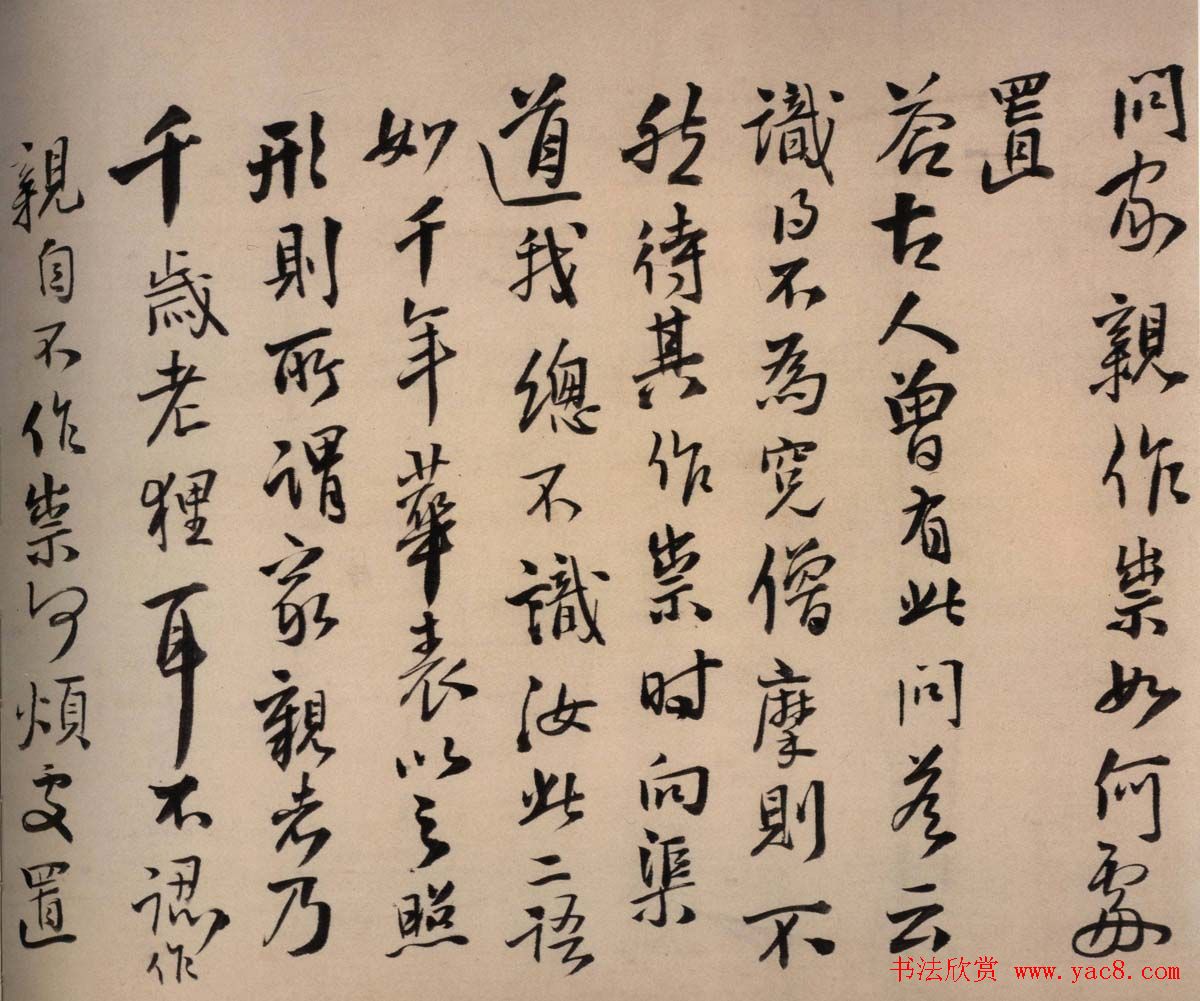 問家親作祟如何處
置
荅古人曾有此問荅云
識得不為寃僧摩則不
然待其作祟时向渠
道我總不識汝此二語
如千年華表以之照
形則所謂家親者乃
千歲老狸耳不認作
親自不作祟何煩處置
书法欣赏 www.yac8.com